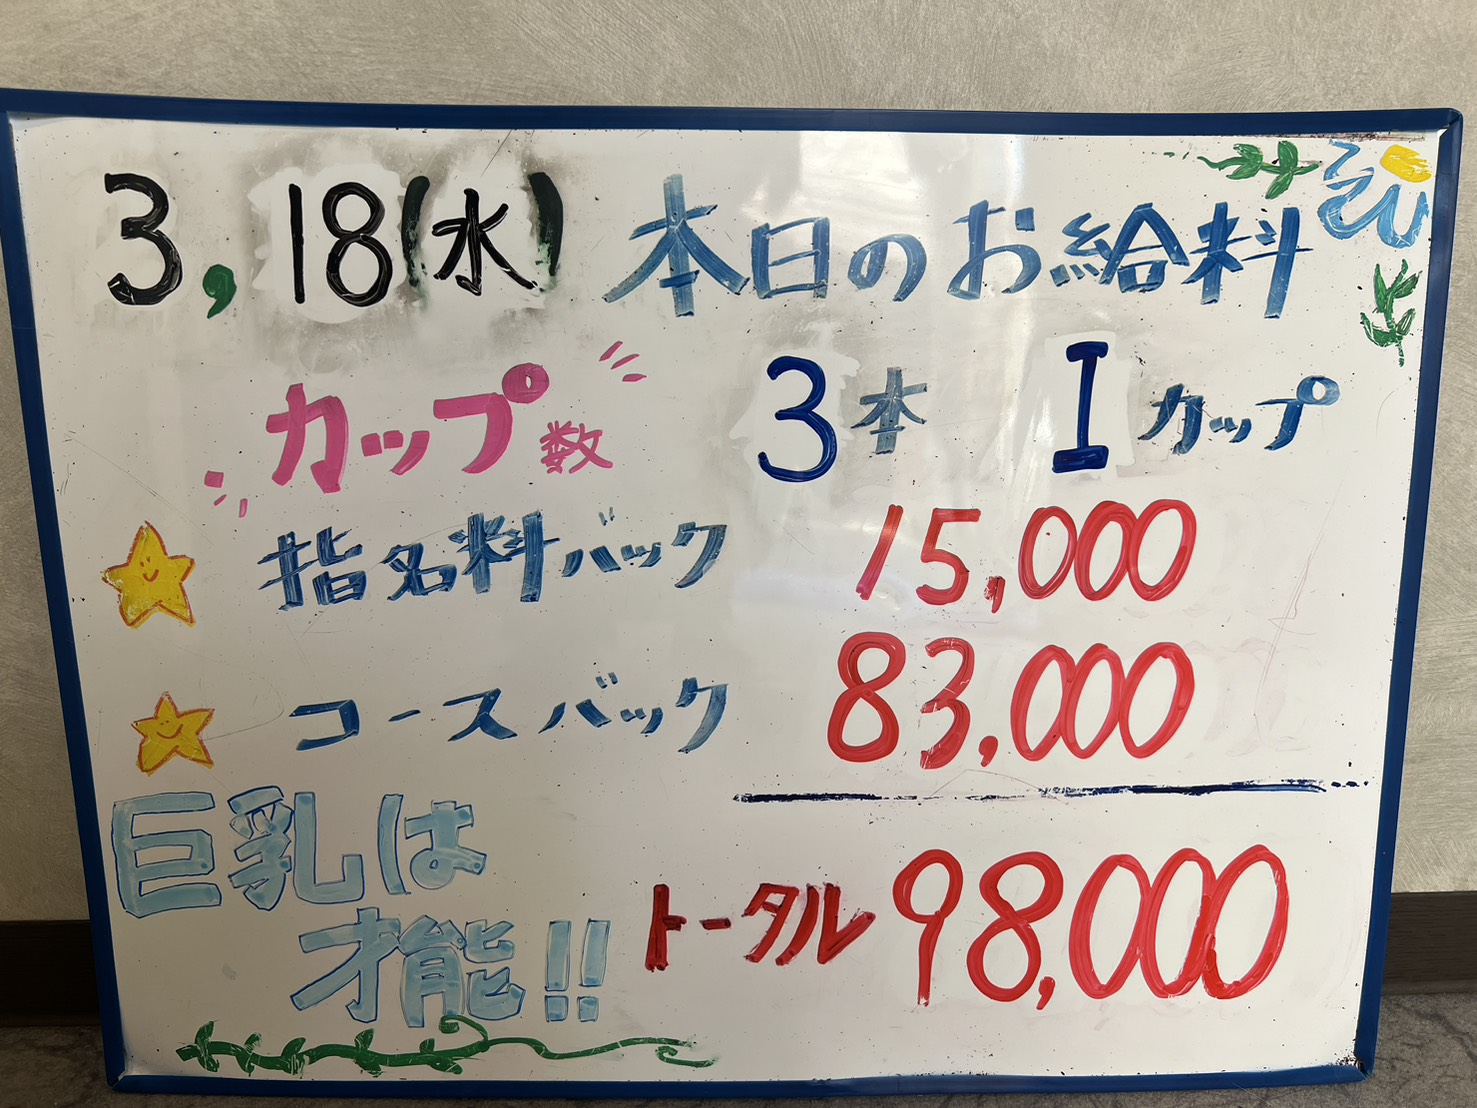 3,18(水) 本日のお給料
カップ数 3本 Iカップ
指名料バック 15,000
コースバック 83,000
巨乳は
才能!!
トータル 98,000